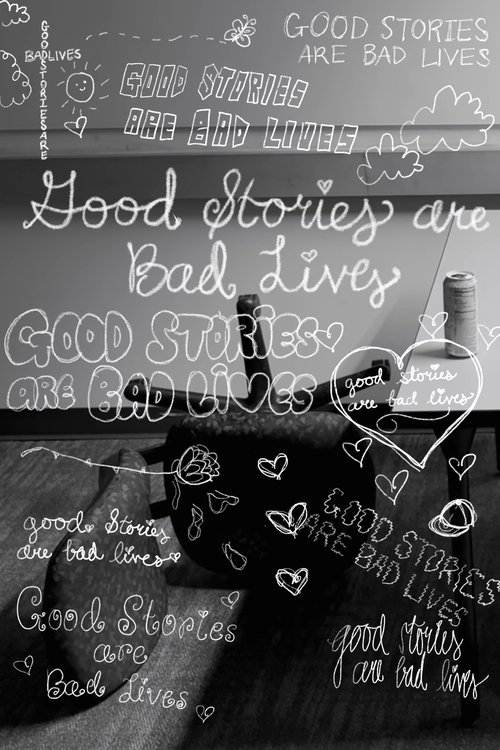 GOOD STORIES
ARE BAD LIVES
GOODSTORIESARE
BADLIVES
GOOD STORIES
ARE BAD LIVES
Good Stories are
Bad Lives
GOOD STORIES
ARE BAD LIVES
good stories
are bad lives
good Stories
are bad lives
GOOD STORIES
ARE BAD LIVES
Good Stories
are
Bad Lives
good stories
are bad lives